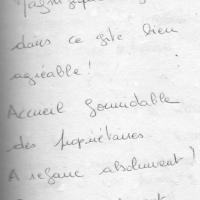 dans ce gîte bien
agréable !
Accueil formidable
des propriétaires.
A refaire absolument !